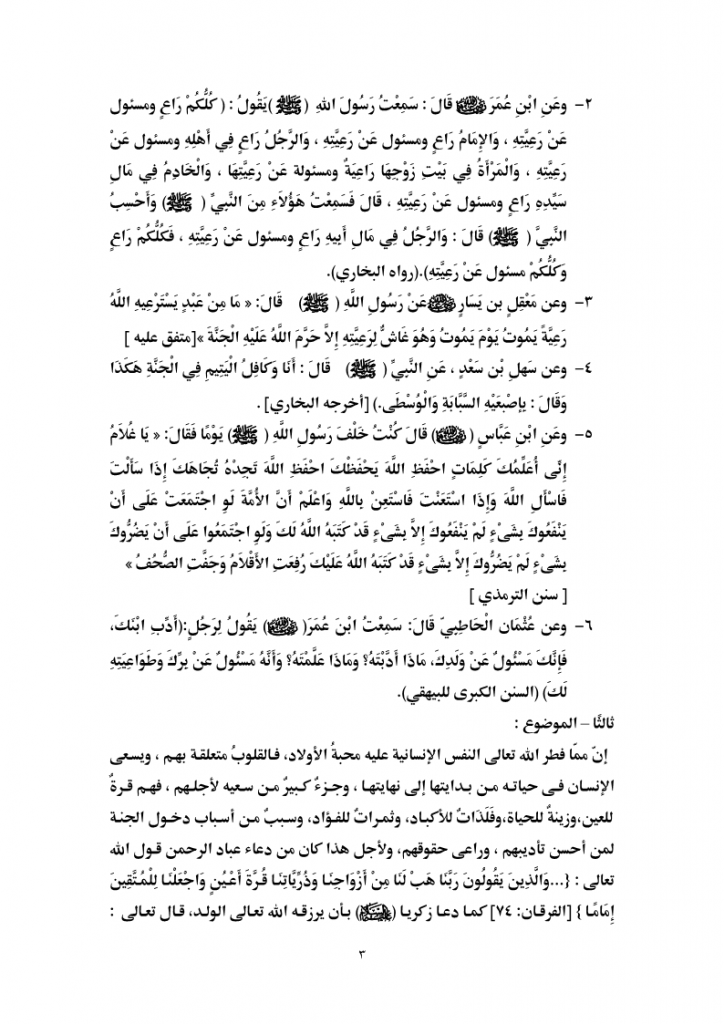 ٢- وعَنِ ابْنِ عُمَرَ ﵁ قَالَ : سَمِعْتُ رَسُولَ اللهِ (ﷺ)يَقُولُ : ( كُلُّكُمْ رَاعٍ ومسئول
عَنْ رَعِيَّتِهِ ، وَالإِمَامُ رَاعٍ ومسئول عَنْ رَعِيَّتِهِ ، وَالرَّجُلُ رَاعٍ فِي أَهْلِهِ ومسئول عَنْ
رَعِيَّتِهِ ، وَالْمَرْأَةُ فِي بَيْتِ زَوْجِهَا رَاعِيَةٌ ومسئولة عَنْ رَعِيَّتِهَا ، وَالْخَادِمُ فِي مَالِ
سَيِّدِهِ رَاعٍ ومسئول عَنْ رَعِيَّتِهِ ، قَالَ فَسَمِعْتُ هَؤُلَاءِ مِنَ النَّبِيِّ ( ﷺ) وَأَحْسِبُ
النَّبِيَّ ( ﷺ) قَالَ : وَالرَّجُلُ فِي مَالِ أَبِيهِ رَاعٍ ومسئول عَنْ رَعِيَّتِهِ ، فَكُلُّكُمْ رَاعٍ
وَكُلُّكُمْ مسئول عَنْ رَعِيَّتِهِ).(رواه البخاري).
٣- وعن مَعْقِلِ بن يَسَارٍ ﵁ عَنْ رَسُولِ اللَّهِ ( ﷺ) قَالَ: « مَا مِنْ عَبْدٍ يَسْتَرْعِيهِ اللَّهُ
رَعِيَّةً يَمُوتُ يَوْمَ يَمُوتُ وَهُوَ غَاشٌّ لِرَعِيَّتِهِ إِلاَّ حَرَّمَ اللَّهُ عَلَيْهِ الْجَنَّةَ »[متفق عليه ]
٤- وعن سَهلِ بْن سَعْدٍ ، عَنِ النَّبِيِّ ( ﷺ) قَالَ : أَنَا وَكَافِلُ الْيَتِيمِ فِي الْجَنَّةِ هَكَذَا
وَقَالَ : بِإِصْبَعَيْهِ السَّبَّابَةِ وَالْوُسْطَى.) [أخرجه البخاري] .
٥- وعَنِ ابْنِ عَبَّاسٍ (﵁) قَالَ كُنْتُ خَلْفَ رَسُولِ اللَّهِ ( ﷺ) يَوْمًا فَقَالَ: « يَا غُلاَمُ
إِنِّى أُعَلِّمُكَ كَلِمَاتٍ احْفَظِ اللَّهَ يَحْفَظْكَ احْفَظِ اللَّهَ تَجِدْهُ تُجَاهَكَ إِذَا سَأَلْتَ
فَاسْأَلِ اللَّهَ وَإِذَا اسْتَعَنْتَ فَاسْتَعِنْ بِاللَّهِ وَاعْلَمْ أَنَّ الأُمَّةَ لَوِ اجْتَمَعَتْ عَلَى أَنْ
يَنْفَعُوكَ بِشَىْءٍ لَمْ يَنْفَعُوكَ إِلاَّ بِشَىْءٍ قَدْ كَتَبَهُ اللَّهُ لَكَ وَلَوِ اجْتَمَعُوا عَلَى أَنْ يَضُرُّوكَ
بِشَىْءٍ لَمْ يَضُرُّوكَ إِلاَّ بِشَىْءٍ قَدْ كَتَبَهُ اللَّهُ عَلَيْكَ رُفِعَتِ الأَقْلاَمُ وَجَفَّتِ الصُّحُفُ »
[ سنن الترمذي ]
٦- وعن عُثْمَان الْحَاطِبِيّ قَالَ: سَمِعْتُ ابْنَ عُمَرَ( ﵁) يَقُولُ لِرَجُلٍ:(أَدِّبِ ابْنَكَ،
فَإِنَّكَ مَسْئُولٌ عَنْ وَلَدِكَ، مَاذَا أَدَّبْتَهُ؟ وَمَاذَا عَلَّمْتَهُ؟ وَأَنَّهُ مَسْئُولٌ عَنْ بِرِّكَ وَطَوَاعِيَتِهِ
لَكَ) (السنن الكبرى للبيهقي).
ثالثًا – الموضوع :
إنّ ممّا فطر الله تعالى النفس الإنسانية عليه محبةُ الأولاد، فالقلوبُ متعلقة بهم ، ويسعى
الإنسان فى حياته من بدايتها إلى نهايتها ، وجزءٌ كبيرٌ من سعيه لأجلهم ، فهم قرةٌ
للعين،وزينةٌ للحياة،وفَلَذَاتٌ للأكباد، وثمراتٌ للفؤاد، وسببٌ من أسباب دخول الجنة
لمن أحسن تأديبهم ، وراعى حقوقهم، ولأجل هذا كان من دعاء عباد الرحمن قول الله
تعالى : {...وَالَّذِينَ يَقُولُونَ رَبَّنَا هَبْ لَنَا مِنْ أَزْوَاجِنَا وَذُرِّيَّاتِنَا قُرَّةَ أَعْيُنٍ وَاجْعَلْنَا لِلْمُتَّقِينَ
إِمَامًا } [الفرقان: ٧٤] كما دعا زكريا (﵇) بأن يرزقه الله تعالى الولد، قال تعالى :
٣